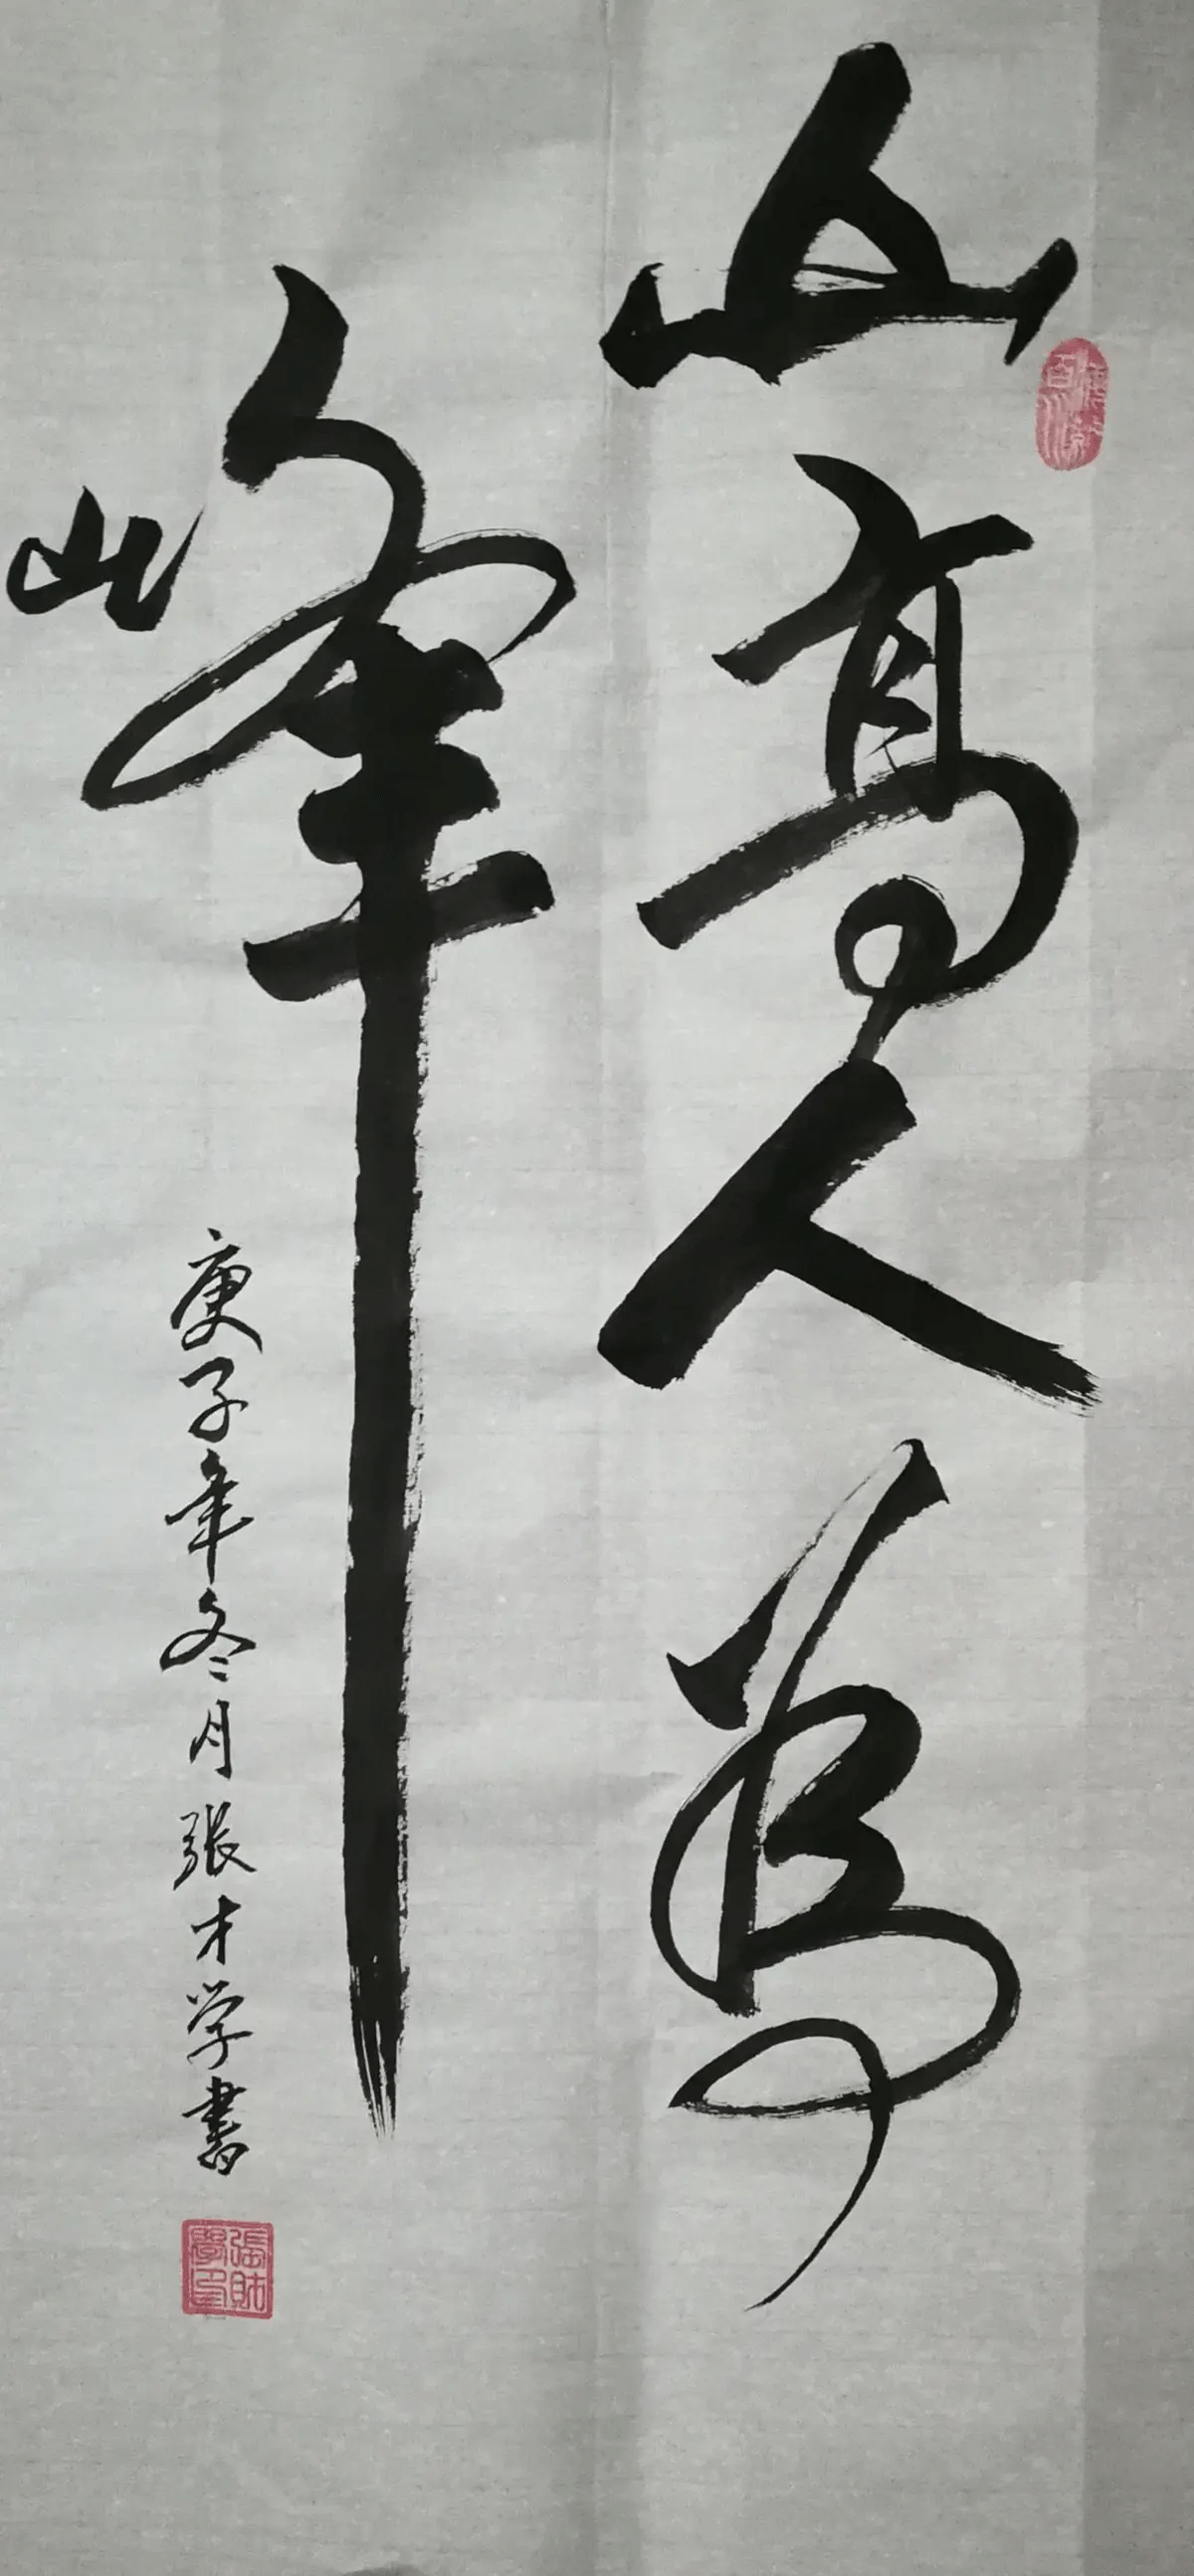 山高人為
峰
庚子年冬月張才学書
張財學印